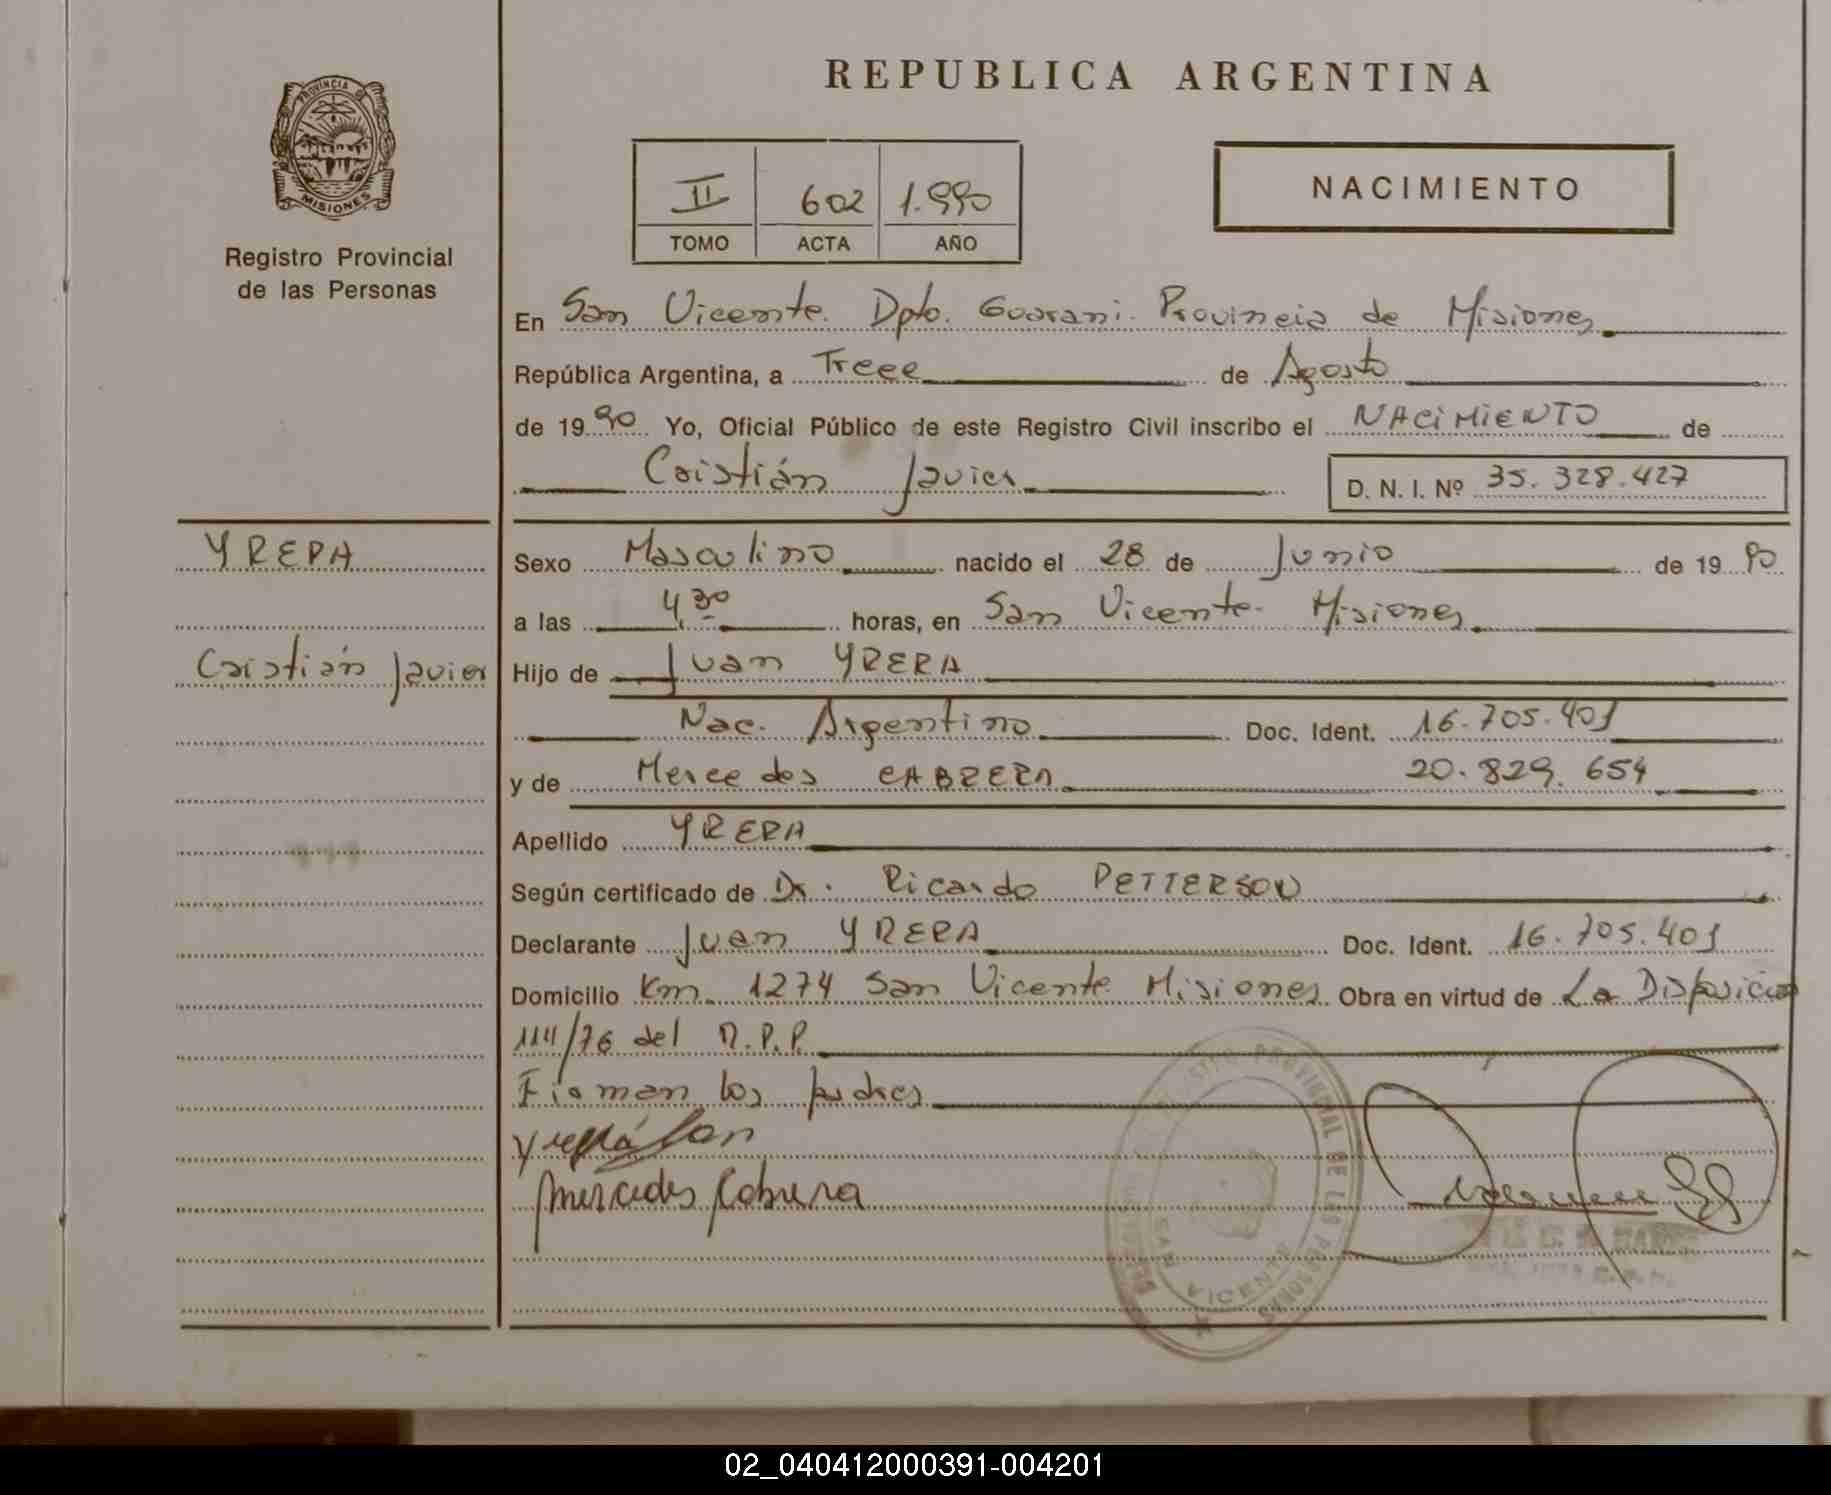 REPUBLICA ARGENTINA
PROVINCIA DE
MISIONES
Registro Provincial
de las Personas
II 602 1.990
TOMO ACTA AÑO
NACIMIENTO
En San Vicente. Dpto. Guarani. Provincia de Misiones
República Argentina, a Trece de Agosto
de 1990 Yo, Oficial Público de este Registro Civil inscribo el NACIMIENTO de
Cristián Javier
D. N. I. Nº 35.328.427
YREPA
Cristián Javier
Sexo Masculino nacido el 28 de Junio de 1990
a las 4,30 horas, en San Vicente. Misiones
Hijo de Juan YRERA
Nac. Argentino Doc. Ident. 16.705.401
y de Mercedes CABRERA 20.829.654
Apellido YRERA
Según certificado de Dr. Ricardo PETTERSON
Declarante Juan YRERA Doc. Ident. 16.705.401
Domicilio Km. 1274 San Vicente Misiones Obra en virtud de La Disposición
111/76 del R.P.P.
Firman los padres
Mercedes Cabrera
REGISTRO PROVINCIAL DE LAS PERSONAS
SAN VICENTE
02_040412000391-004201